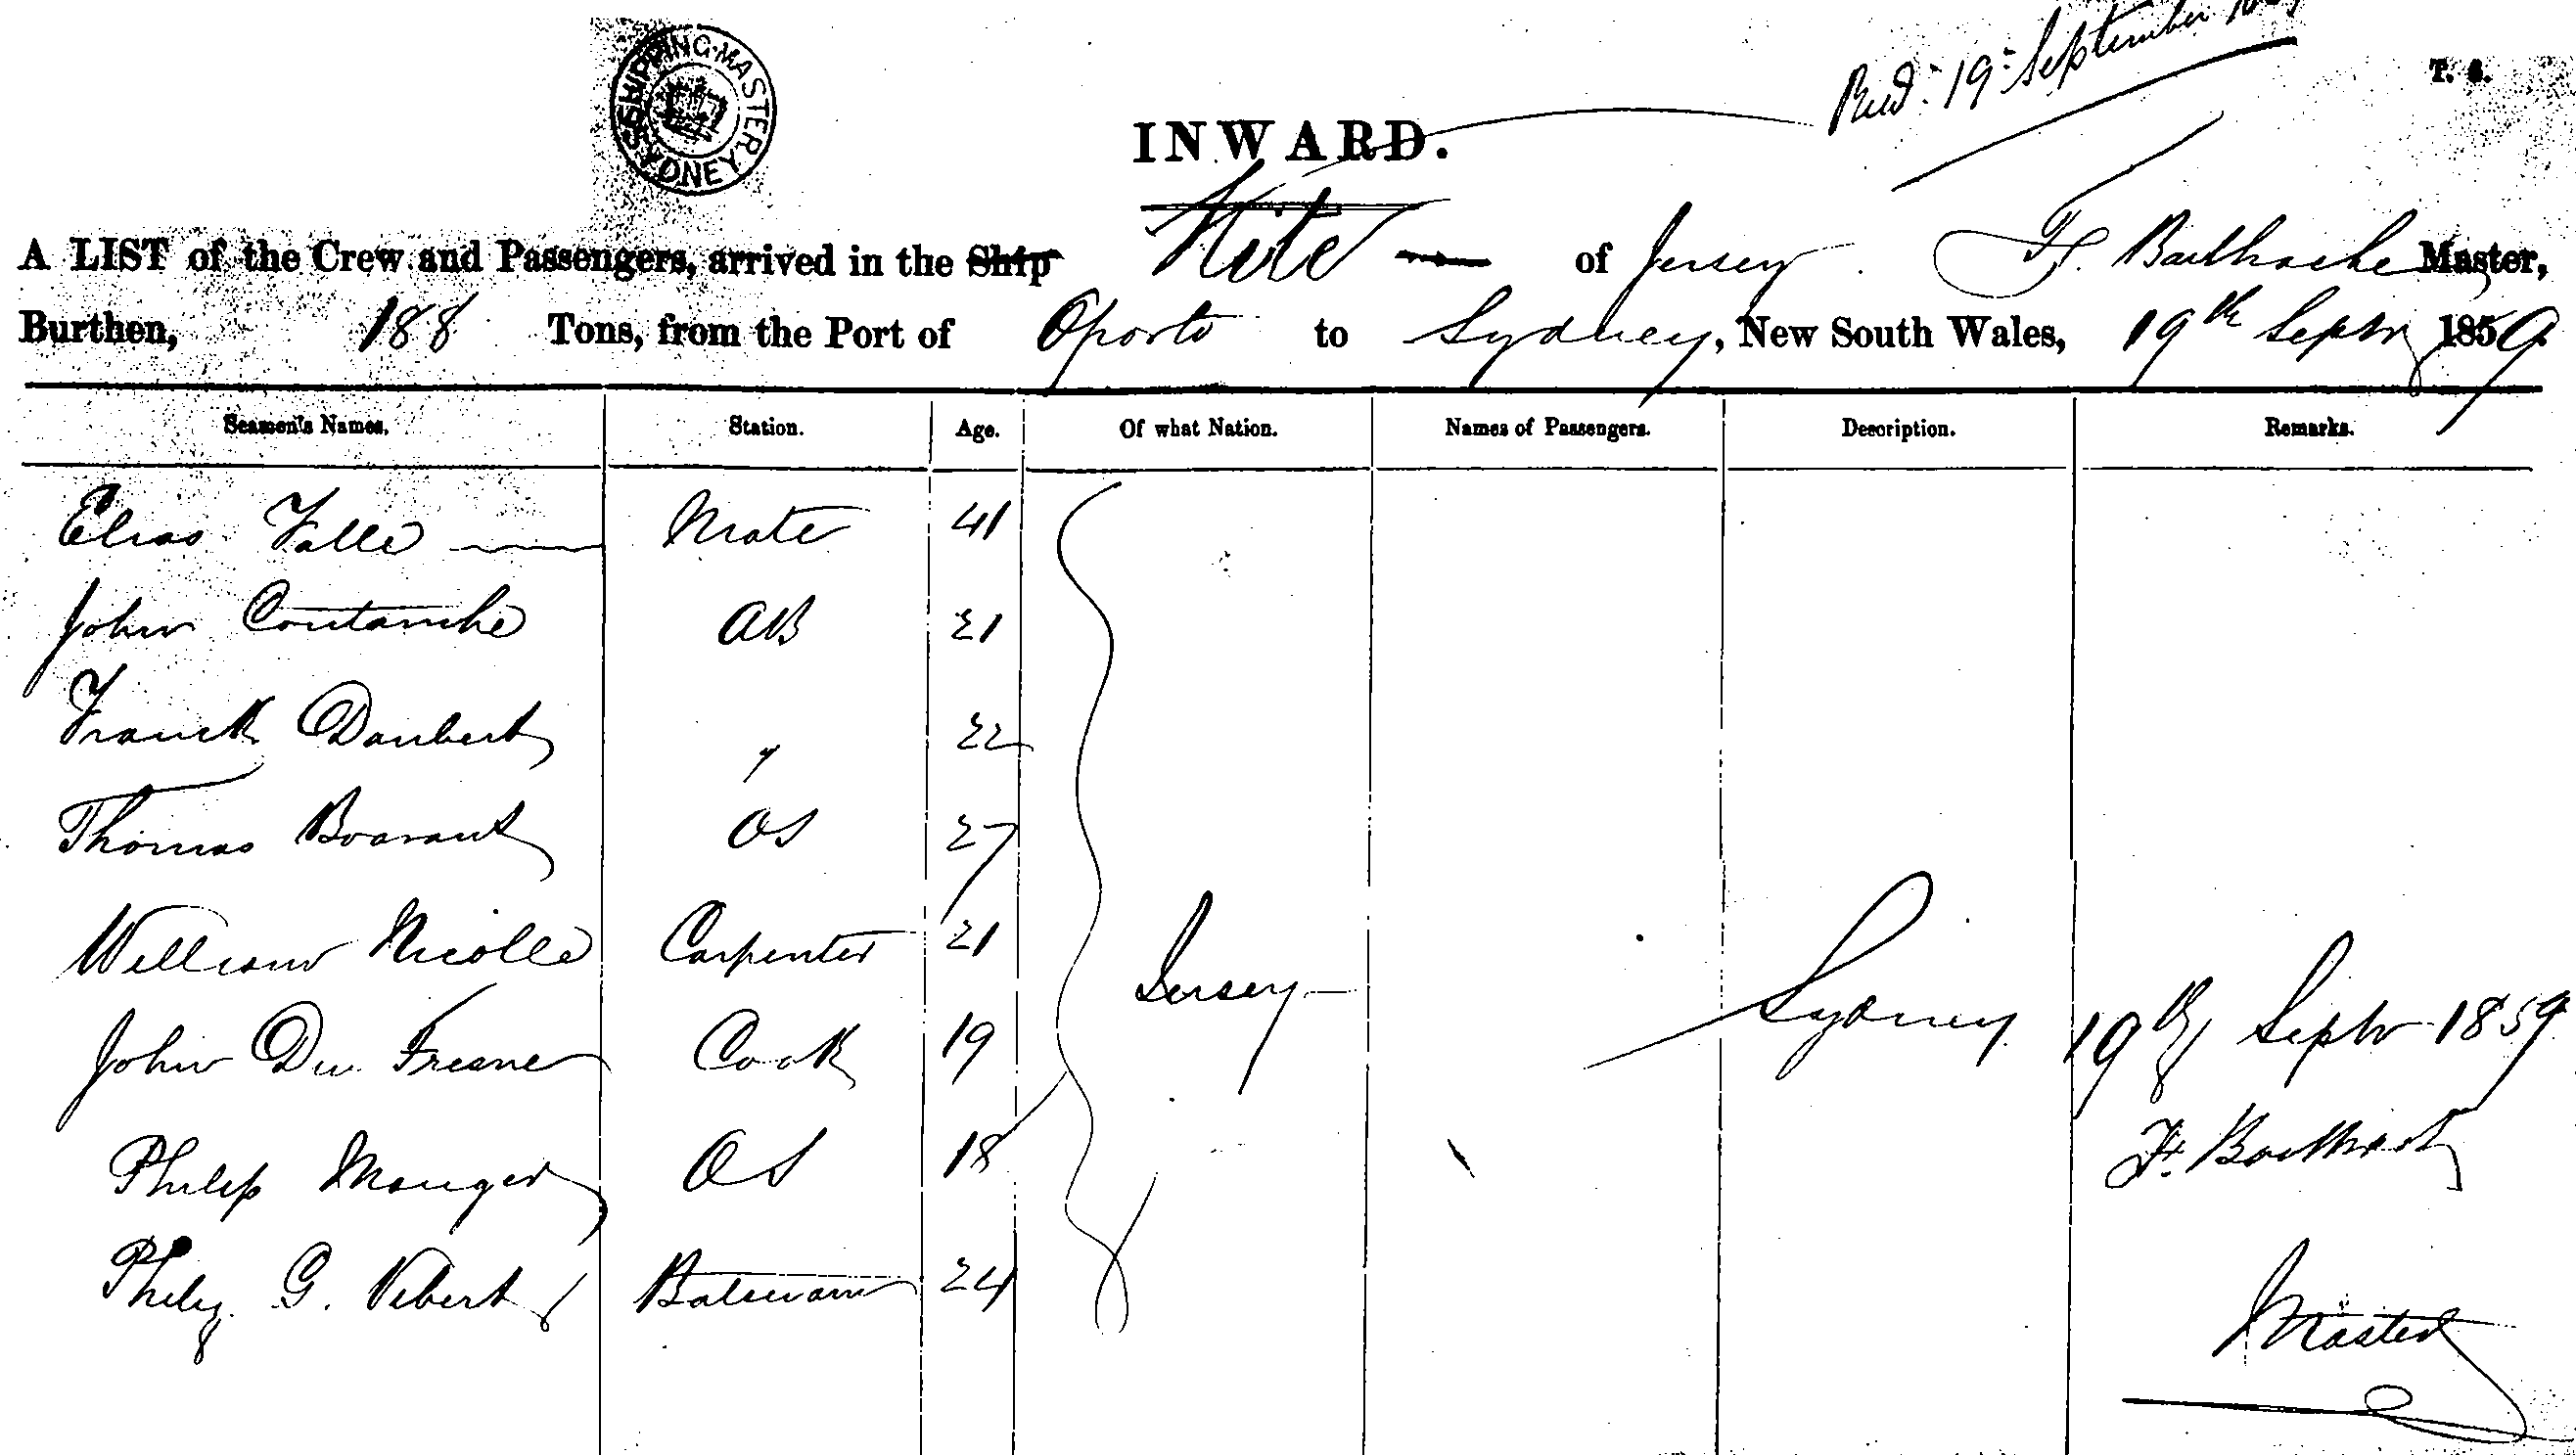 SHIPPING MASTER SYDNEY
Recd. 19 September
T. S.
INWARD.
A LIST of the Crew and Passengers, arrived in the Ship Kite of Jersey F. Master,
Burthen, 188 Tons, from the Port of Oporto to Sydney, New South Wales, 19th Septr 1859
Seamen's Names. Station. Age. Of what Nation. Names of Passengers. Description. Remarks.
Elias Falle Mate 41
John Coutanche AB 21
Franck Daubert " 22
Thomas OS 27
William Nicolle Carpenter 21
Jersey
John Du Fresne Cook 19
Sydney 19th Septr 1859
Philip Mauger OS 18
F.
Philip G. Vibert 24
Master